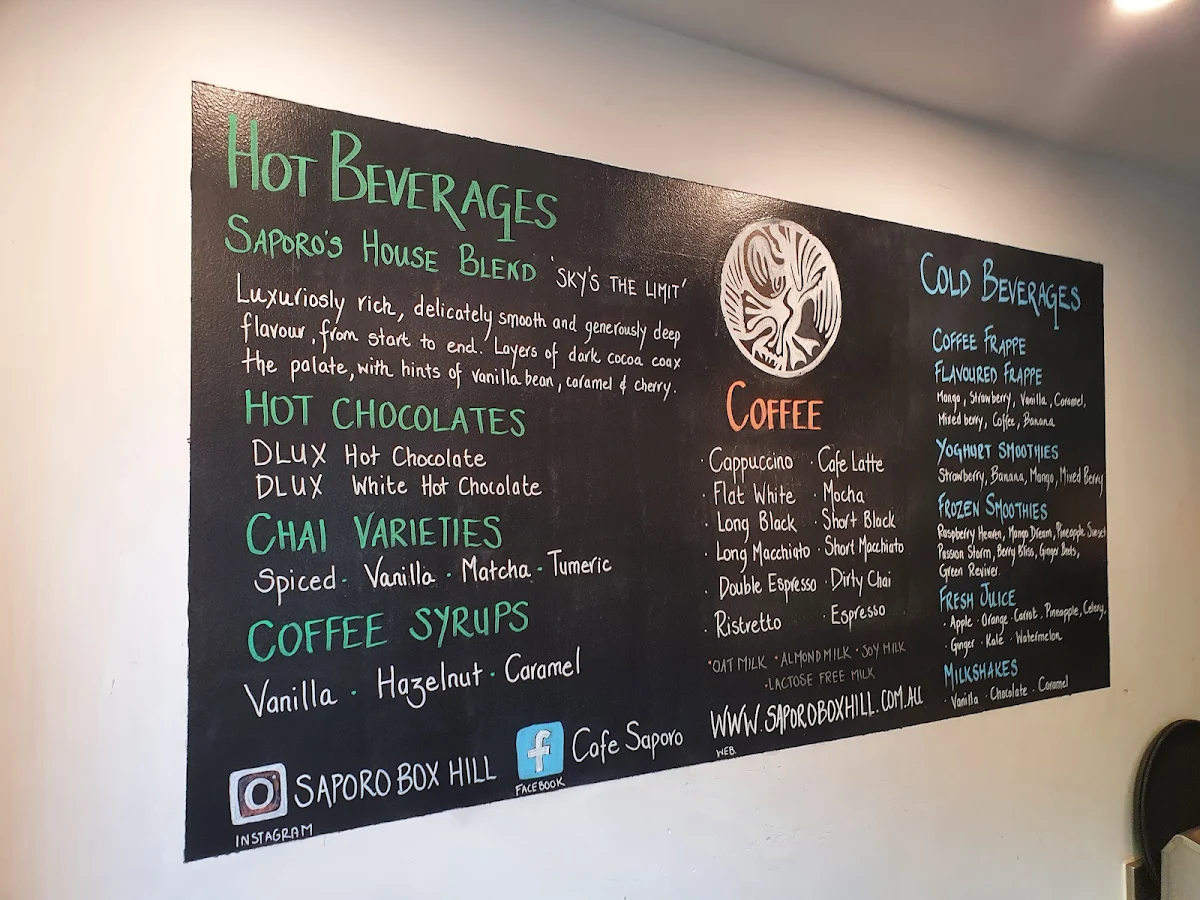 HOT BEVERAGES
SAPORO'S HOUSE BLEND 'SKY'S THE LIMIT'
Luxuriosly rich, delicately smooth and generously deep
flavour, from start to end. Layers of dark cocoa coax
the palate, with hints of vanilla bean, caramel & cherry.
HOT CHOCOLATES
DLUX Hot Chocolate
DLUX White Hot Chocolate
CHAI VARIETIES
Spiced · Vanilla · Matcha · Tumeric
COFFEE SYRUPS
Vanilla · Hazelnut · Caramel
SAPORO BOX HILL
INSTAGRAM
f Cafe Saporo
FACEBOOK
COFFEE
· Cappuccino · Cafe Latte
· Flat White · Mocha
· Long Black · Short Black
· Long Macchiato · Short Macchiato
· Double Espresso · Dirty Chai
· Ristretto · Espresso
· OAT MILK · ALMOND MILK · SOY MILK
· LACTOSE FREE MILK
WWW.SAPOROBOXHILL.COM.AU
WEB.
COLD BEVERAGES
COFFEE FRAPPE
FLAVOURED FRAPPE
Mango, Strawberry, Vanilla, Caramel,
Mixed berry, Coffee, Banana
YOGHURT SMOOTHIES
Strawberry, Banana, Mango, Mixed Berry
FROZEN SMOOTHIES
Raspberry Heaven, Mango Dream, Pineapple Sunset
Passion Storm, Berry Bliss, Ginger Beets,
Green Reviver.
FRESH JUICE
· Apple · Orange · Carrot · Pineapple, Celery,
· Ginger · Kale · Watermelon
MILKSHAKES
· Vanilla · Chocolate · Caramel